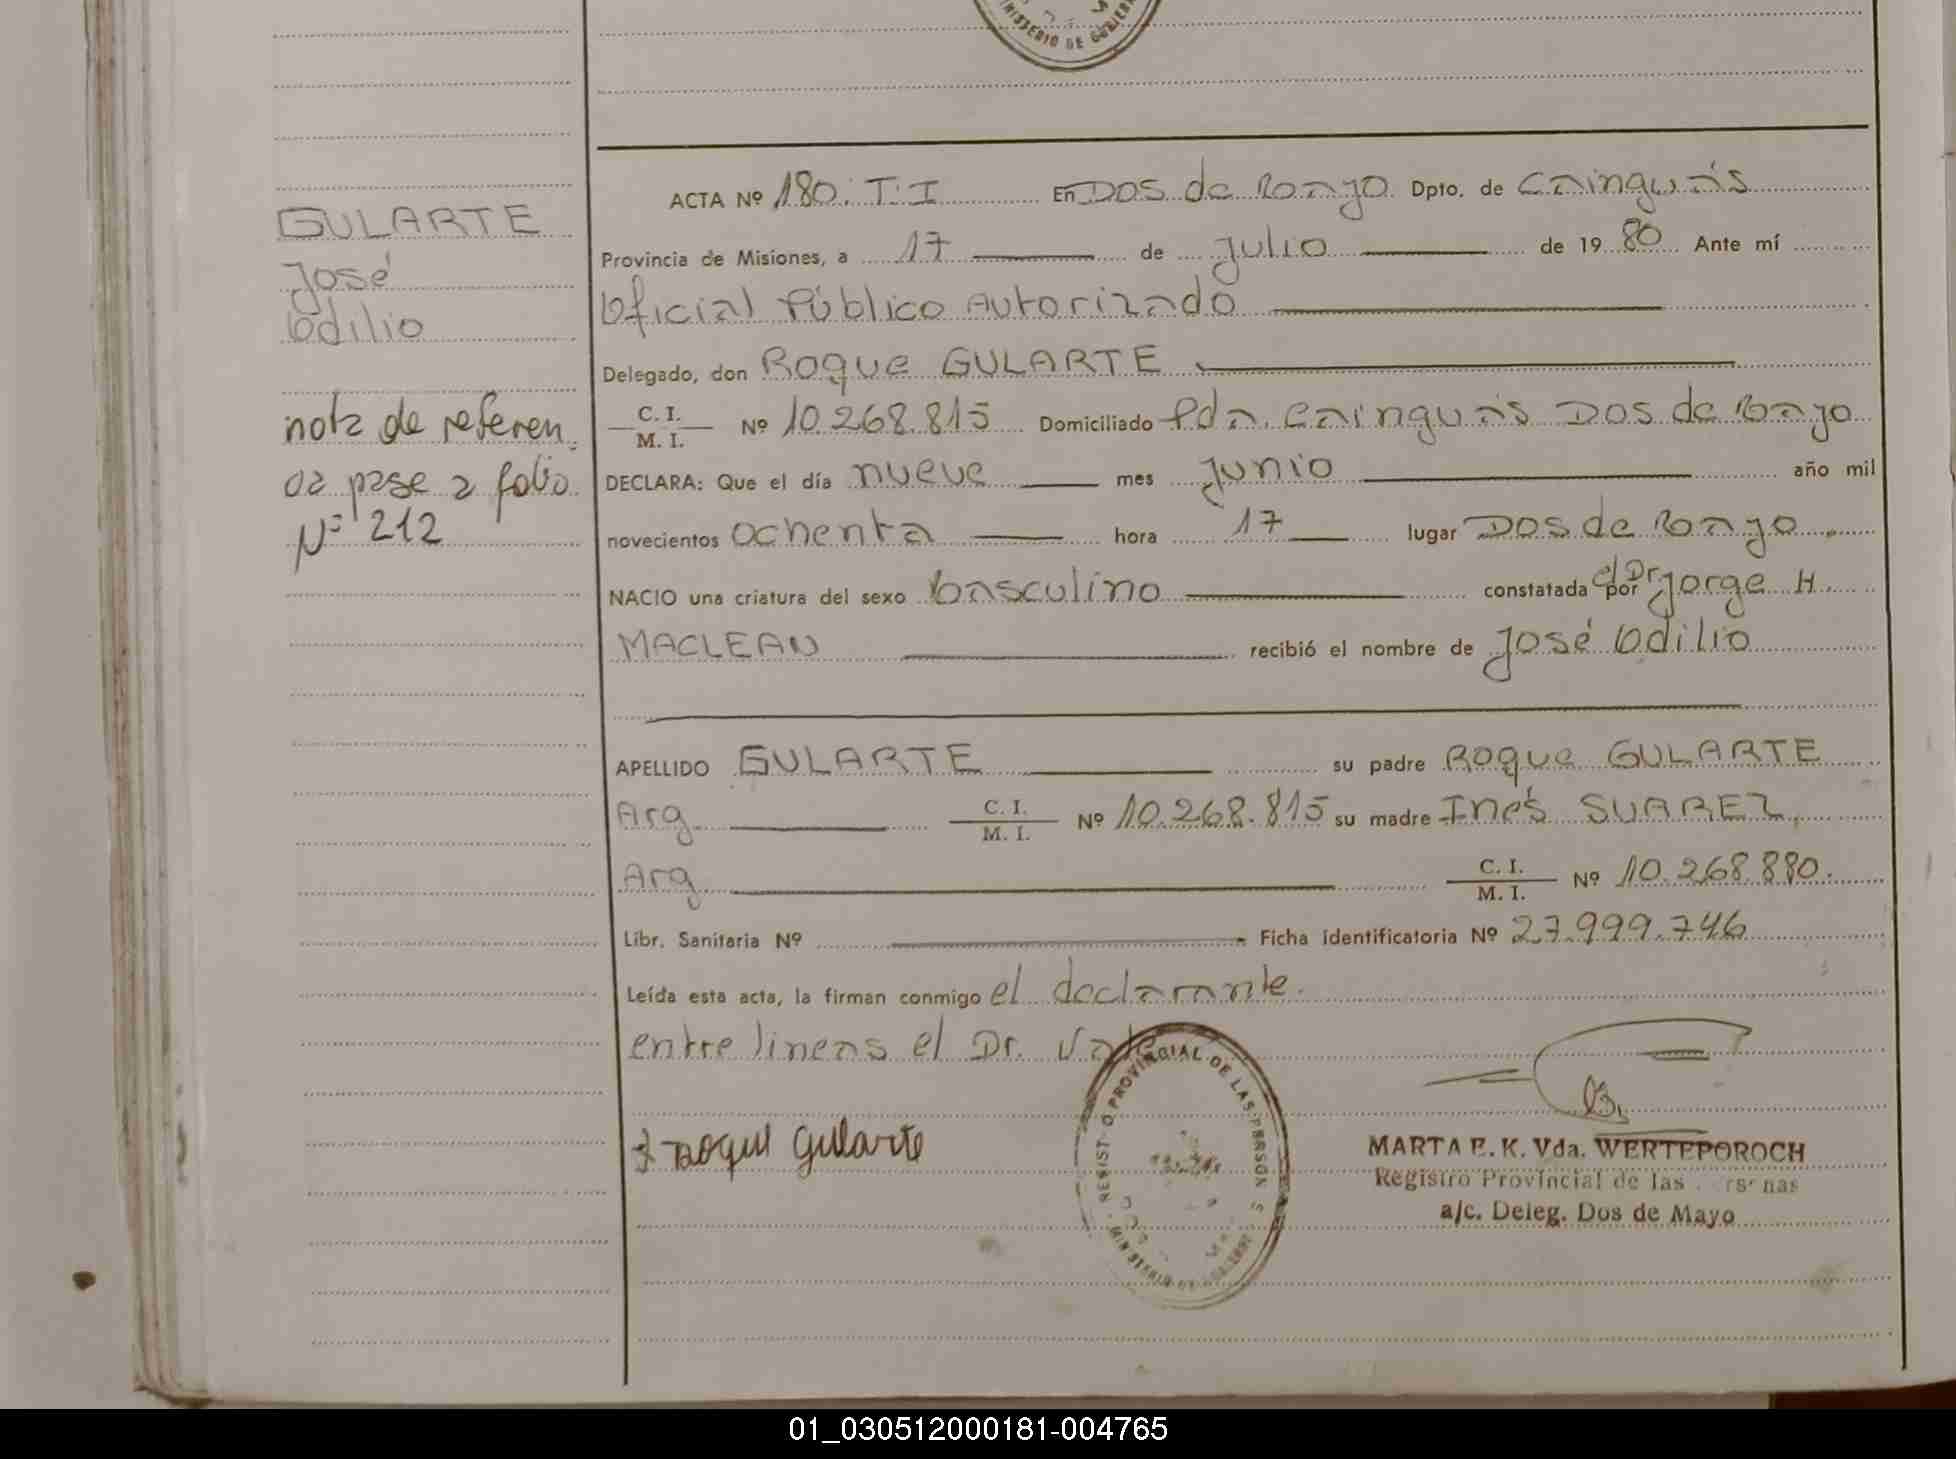 MINISTERIO DE GOBIERN
ACTA Nº 180. T. I En Dos de Mayo Dpto. de Cainguás
GULARTE
José
Odilio
Provincia de Misiones, a 17 de julio de 1980 Ante mí
Oficial Público Autorizado
Delegado, don Roque GULARTE
C. I. / M. I. Nº 10.268.815 Domiciliado Pda. Cainguás Dos de Mayo
nota de referen
cia pase a folio
Nº 212
DECLARA: Que el día nueve mes junio año mil
novecientos ochenta hora 17 lugar Dos de Mayo
NACIO una criatura del sexo Masculino constatada por el Dr. Jorge H.
MACLEAN recibió el nombre de José Odilio
APELLIDO GULARTE su padre Roque GULARTE
Arg. C. I. / M. I. Nº 10.268.815 su madre Inés SUAREZ
Arg C. I. / M. I. Nº 10.268.880.
Libr. Sanitaria Nº Ficha identificatoria Nº 27.999.746
Leída esta acta, la firman conmigo el declarante.
entre lineas el Dr. Vale
REGIST O PROVINCIAL DE LAS PERSON S
MINISTERIO DE GOBIERNO
Roque Gularte
MARTA E. K. Vda. WERTEPOROCH
Registro Provincial de las ersonas
a/c. Deleg. Dos de Mayo
01_030512000181-004765